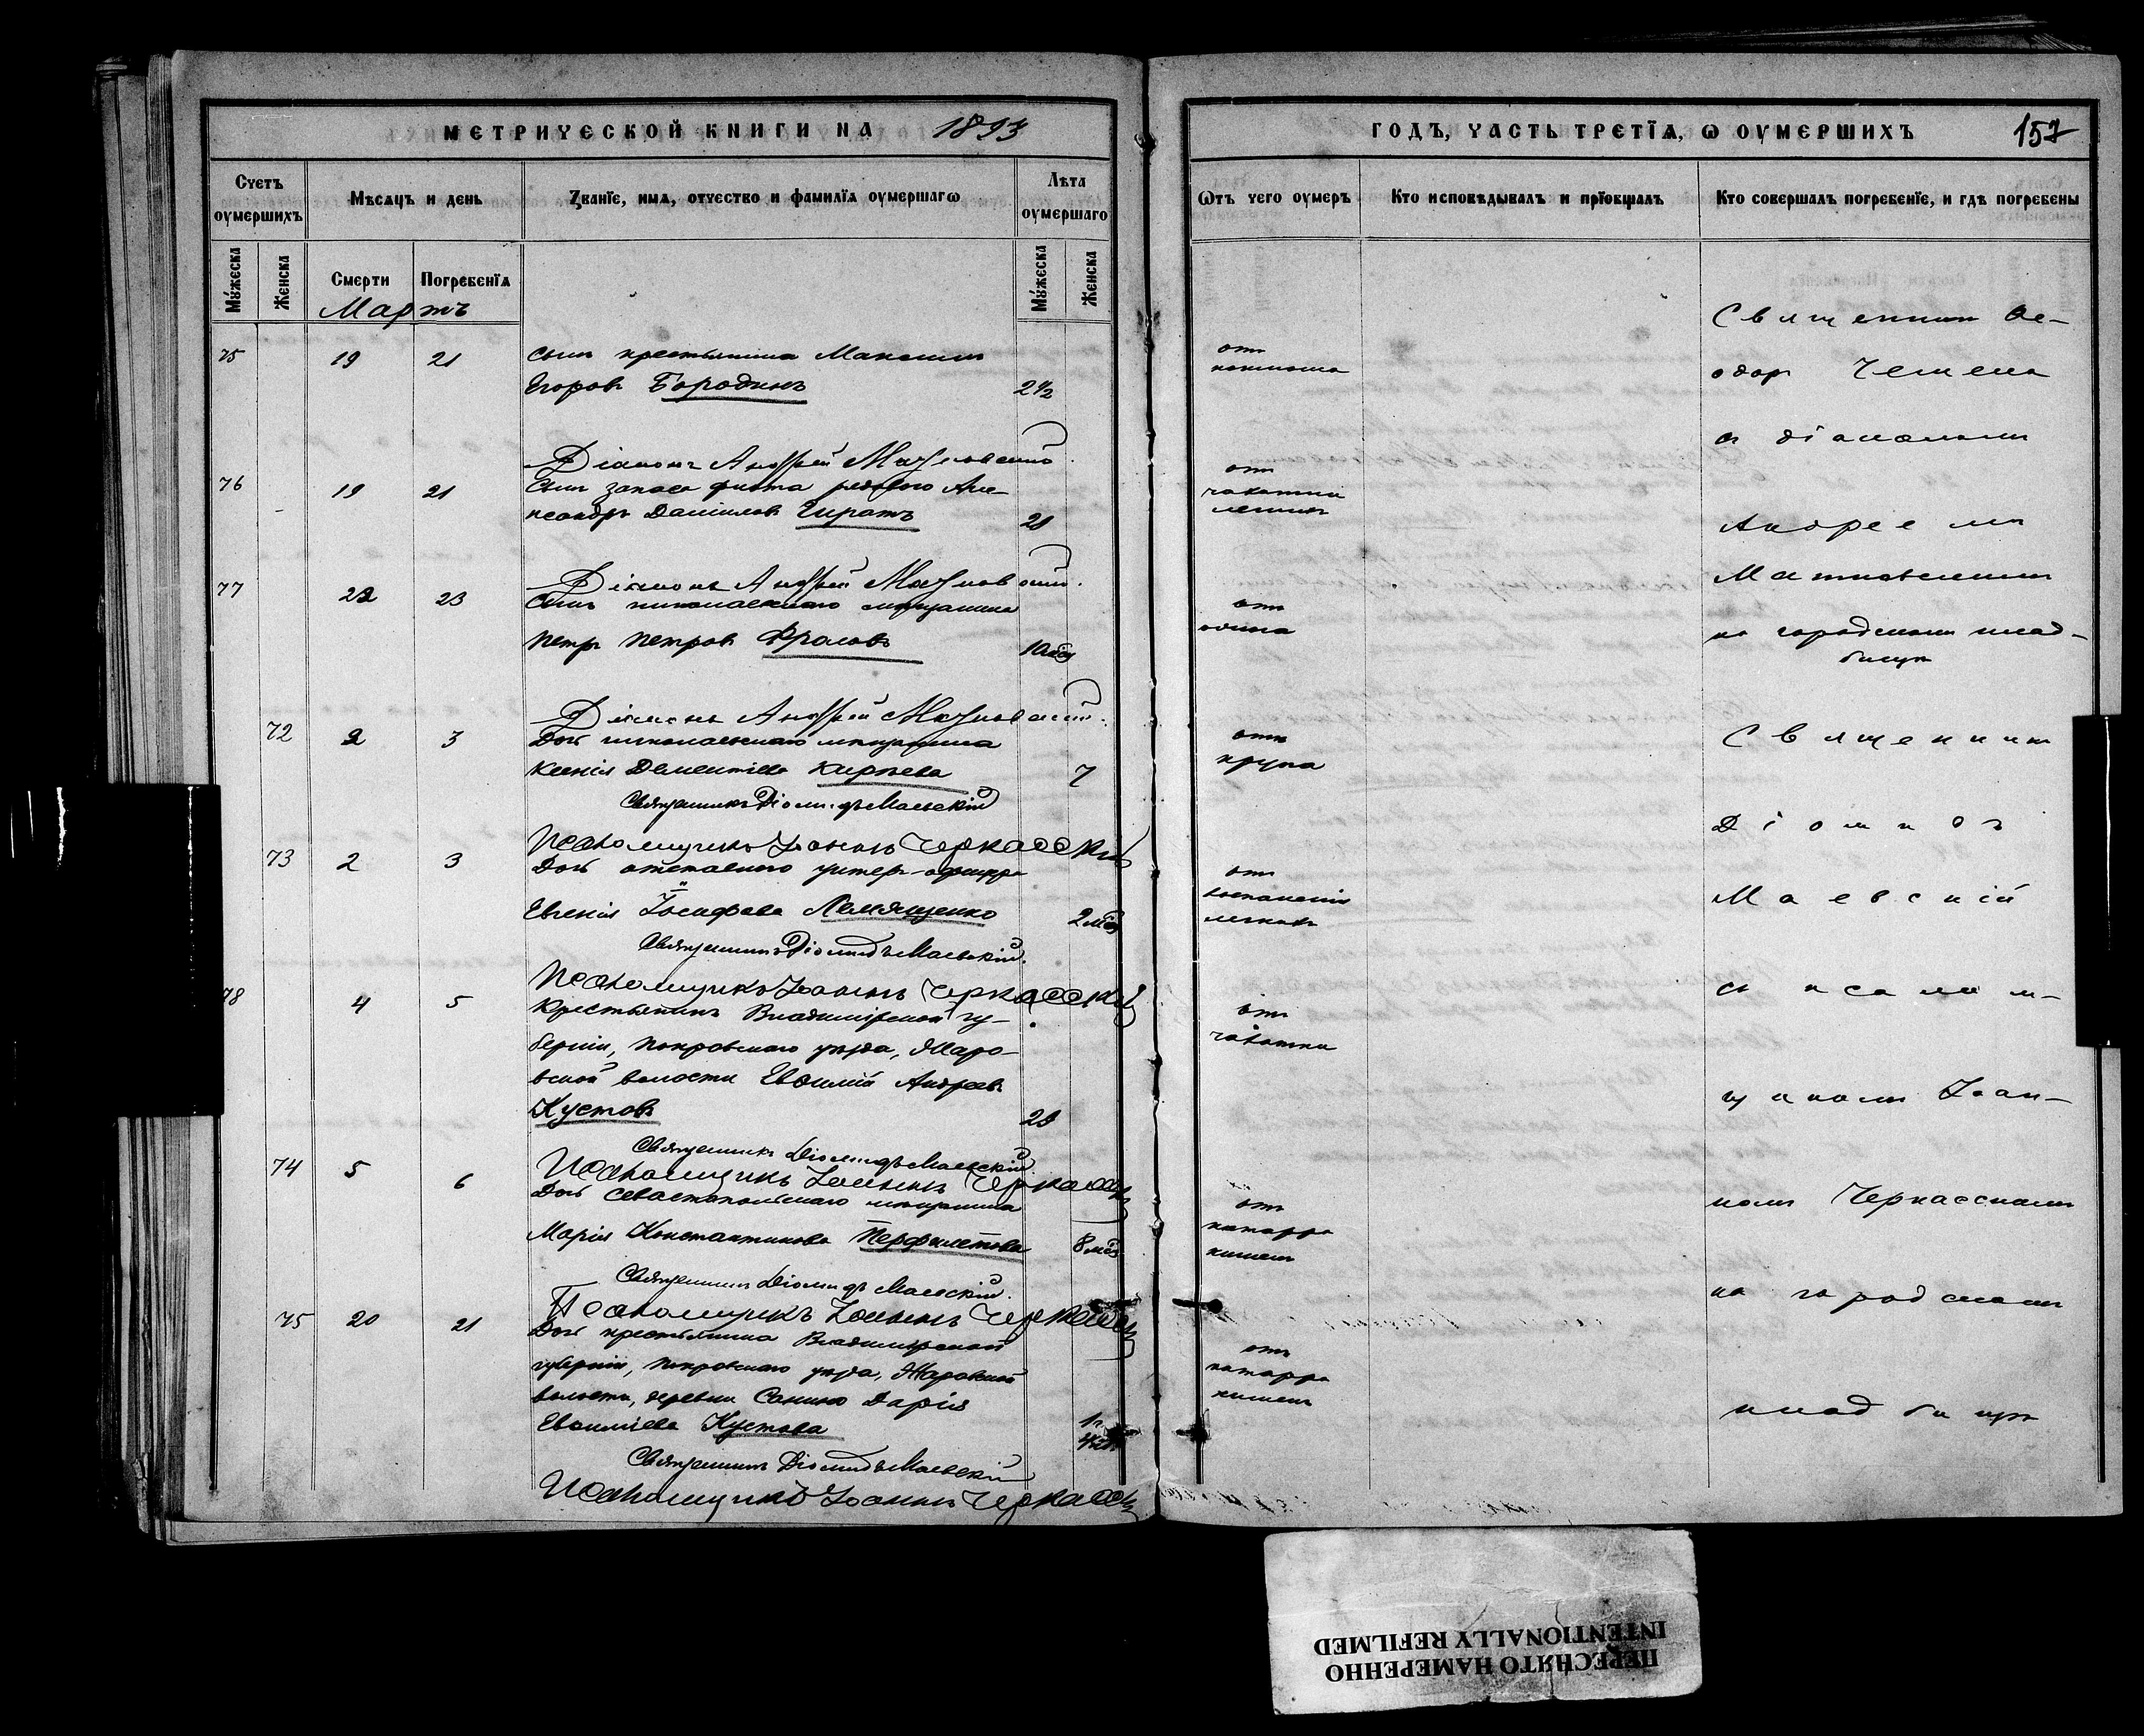 МЕТРИЧЕСКОЙ КНИГИ НА 1893
ГОДЪ, ЧАСТЬ ТРЕТІЯ, Ѡ ОУМЕРШИХЪ 157
Счетъ оумершихъ
Мѣсяцъ и день
Званіе, имя, отчество и фамилія оумершагѡ
Лѣта оумершаго
Ѿтъ чего оумеръ
Кто исповѣдывалъ и пріобщалъ
Кто совершалъ погребеніе, и гдѣ погребены
Мужеска
Женска
Смерти
Погребенія
Мужеска
Женска
Мартъ
75 19 21 сынъ крестьянина Максимъ
Егоровъ Бородинъ 2 1/2
Діаконъ Андрей
76 19 21 Сынъ запаса флота рядового Але-
ксандръ Даніиловъ Гиратъ
Діаконъ Андрей
77 22 23 Сынъ николаевскаго мѣщанина
Петръ Петровъ Фроловъ 10 мѣс
Діаконъ Андрей
72 2 3 Дочь николаевскаго мѣщанина
Ксенія Дементіева Карпева 7
Священникъ Діомидъ Маевскій
Псаломщикъ Іоаннъ Черкасскій
73 2 3 Дочь отставного унтеръ-офицера
Евгенія Іосифова Лемященко 2 мѣс
Священникъ Діомидъ Маевскій
Псаломщикъ Іоаннъ Черкасскій
78 4 5 Крестьянинъ Владимірской гу-
берніи, Покровскаго уѣзда, Жаро-
вской волости Евѳимій Андреевъ
Кустовъ 28
Священникъ Діомидъ Маевскій
Псаломщикъ Іоаннъ Черкасскій
74 5 6 Дочь севастопольскаго мѣщанина
Марія Константинова Перфилетова 8 мѣс
Священникъ Діомидъ Маевскій
Псаломщикъ Іоаннъ Черкасскій
75 20 21 Дочь крестьянина Владимірской
губерніи, Покровскаго уѣзда, Жаровской
волости, деревни Санино Дарія
Евѳиміева Кустова
1 г.
Священникъ Діомидъ Маевскій
Псаломщикъ Іоаннъ Черкасскій
отъ
коклюша
отъ
чахотки
легкихъ
отъ
отъ
крупа
отъ
воспаленія
легкихъ
отъ
чахотки
отъ
катарра
кишекъ
отъ
катарра
кишекъ
Священникъ Ѳе-
одоръ Чемена
съ діакономъ
Андреемъ
на городскомъ клад-
бищѣ
Священникъ
Діомидъ
Маевскій
съ псалом-
щикомъ Іоан-
номъ Черкасскимъ
на городскомъ
кладбищѣ
ПЕРЕСНЯТО НАМЕРЕННО
INTENTIONALLY REFILMED